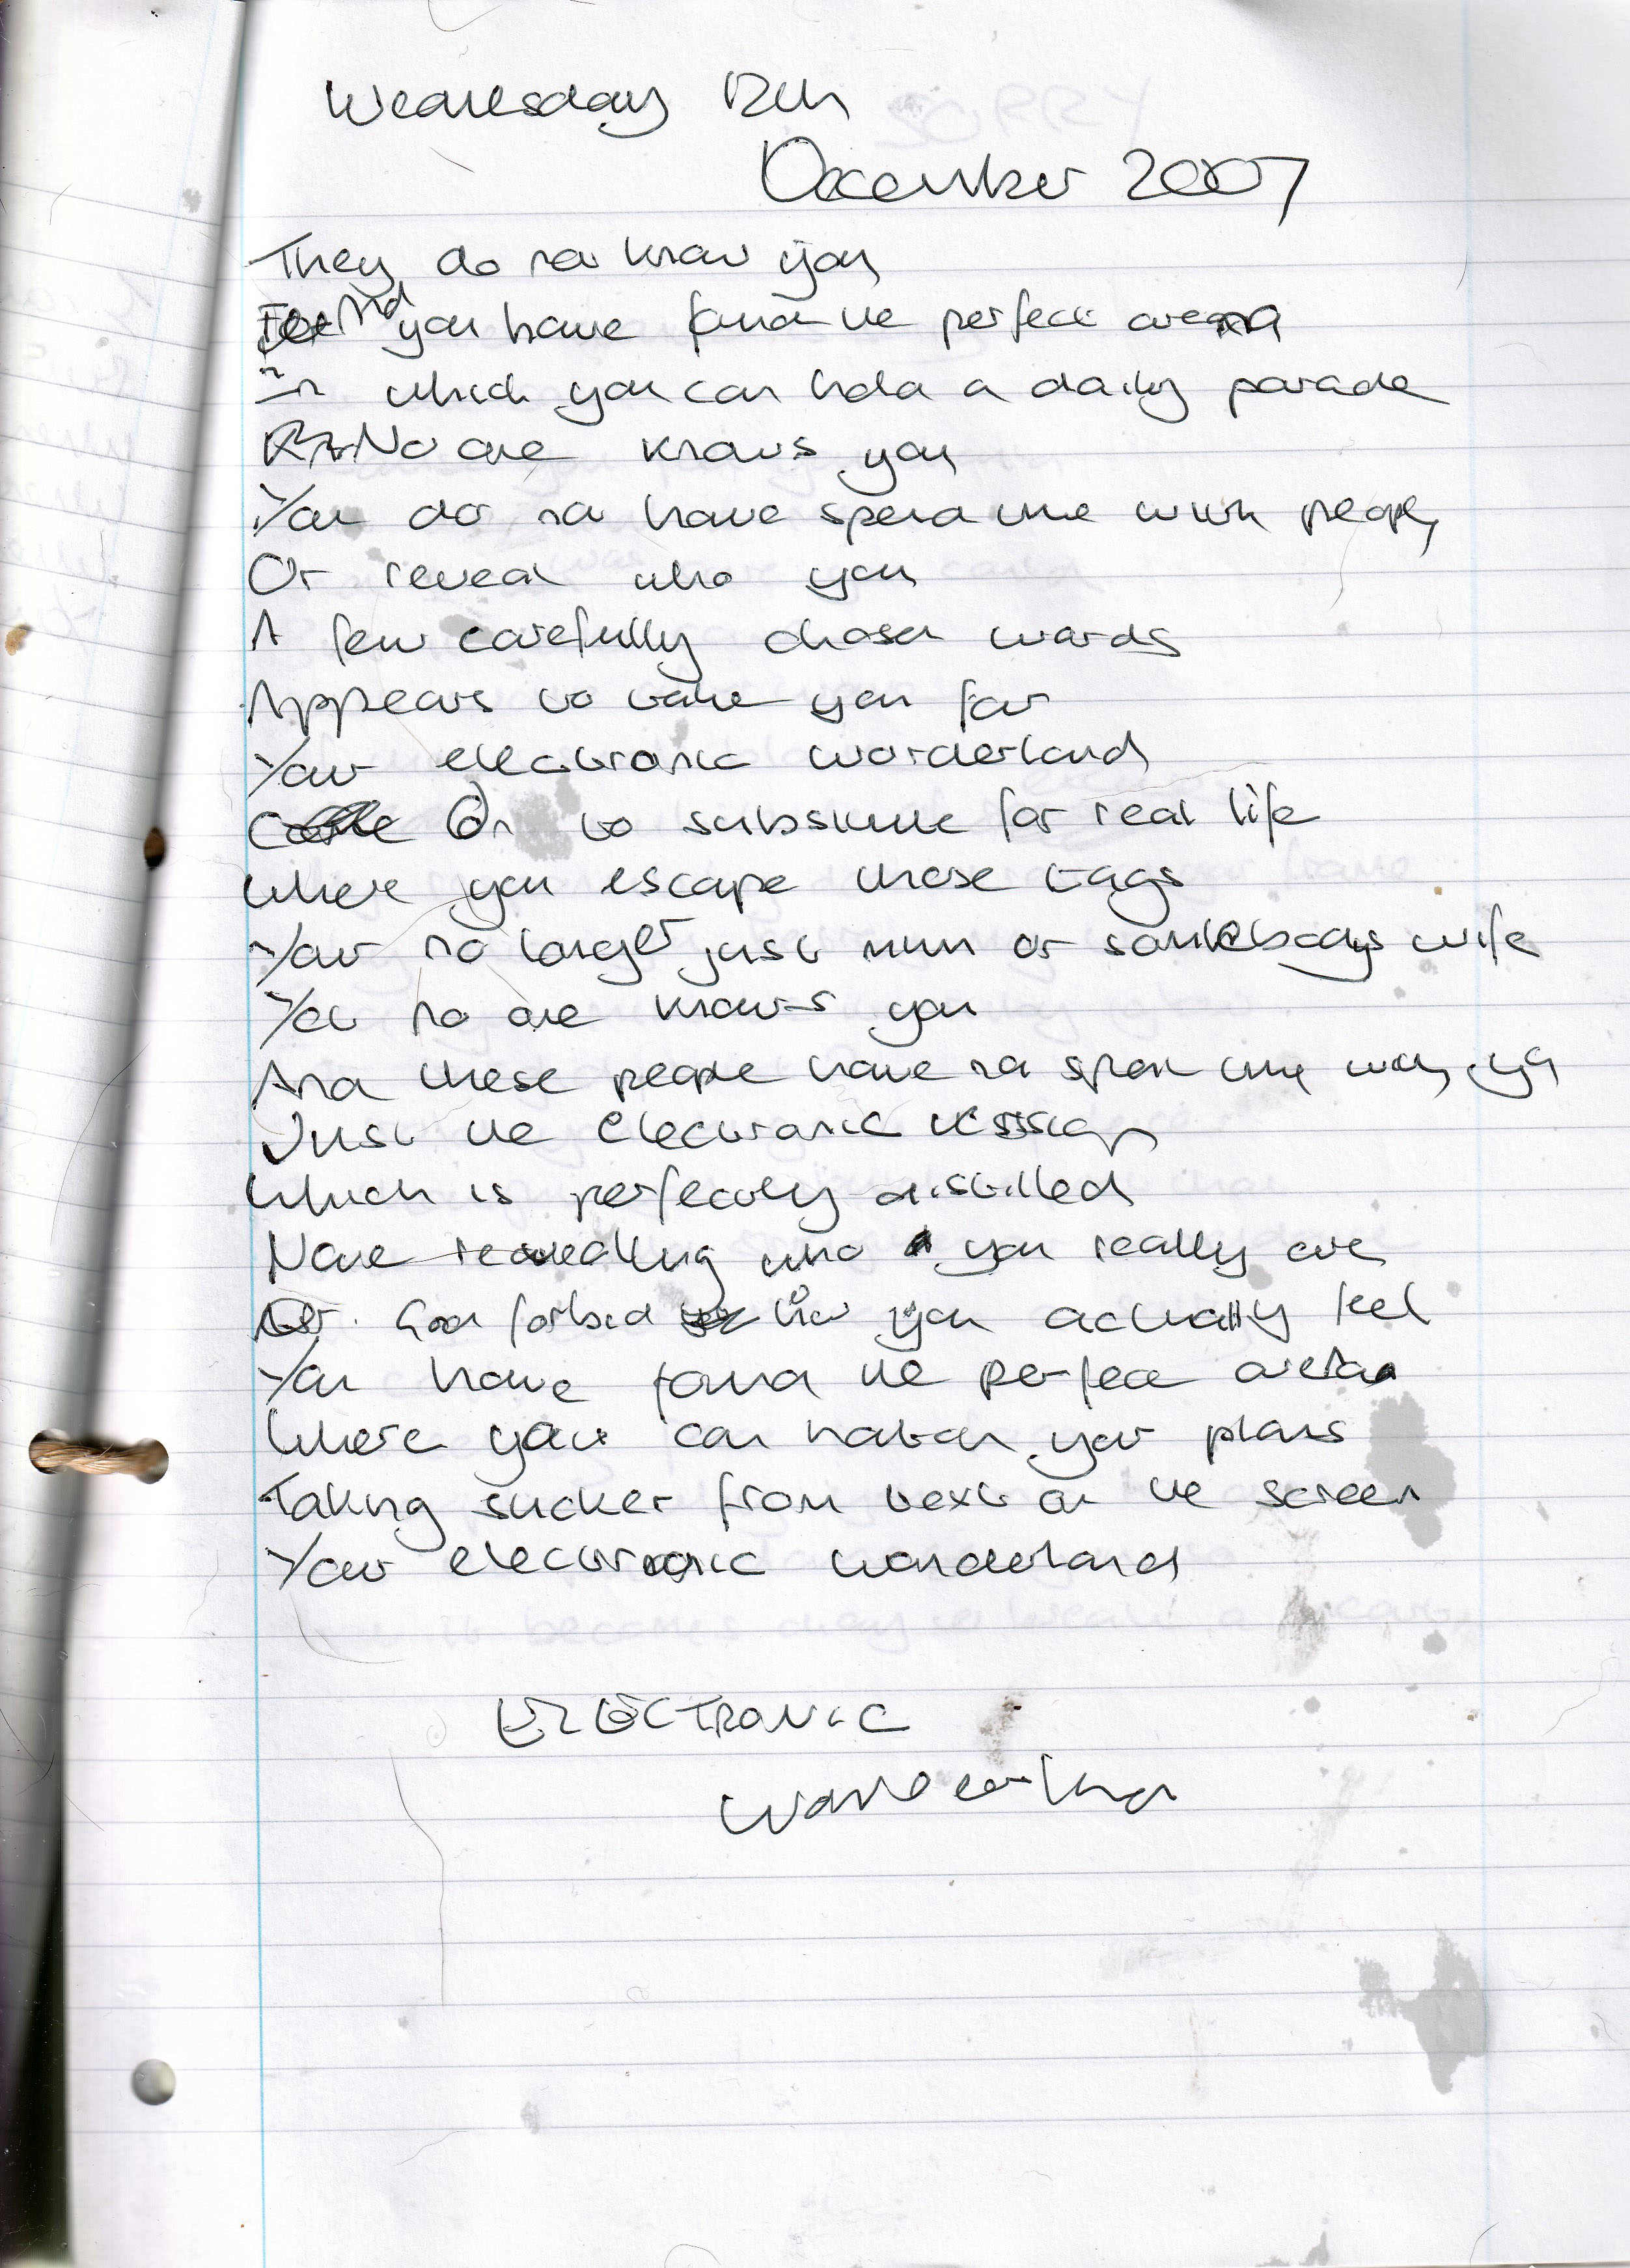 Wednesday 12th
December 2007
They do not know you
And you have found the perfect arena
In which you can hold a daily parade
No one knows you
You do not have spend time with people
Or reveal who you
A few carefully chosen words
Appears to take you far
Your electronic wonderland
On to substitute for real life
Where you escape those tags
Your no longer just mum or somebodys wife
Yet no one knows you
And these people have not spent time with you
Just the electronic version
Which is perfectly distilled
None revealing who you really are
Or God forbid how you actually feel
You have found the perfect arena
Where you can hatch your plans
Taking sucker from text on the screen
Your electronic wonderland
ELECTRONIC
Wonderland